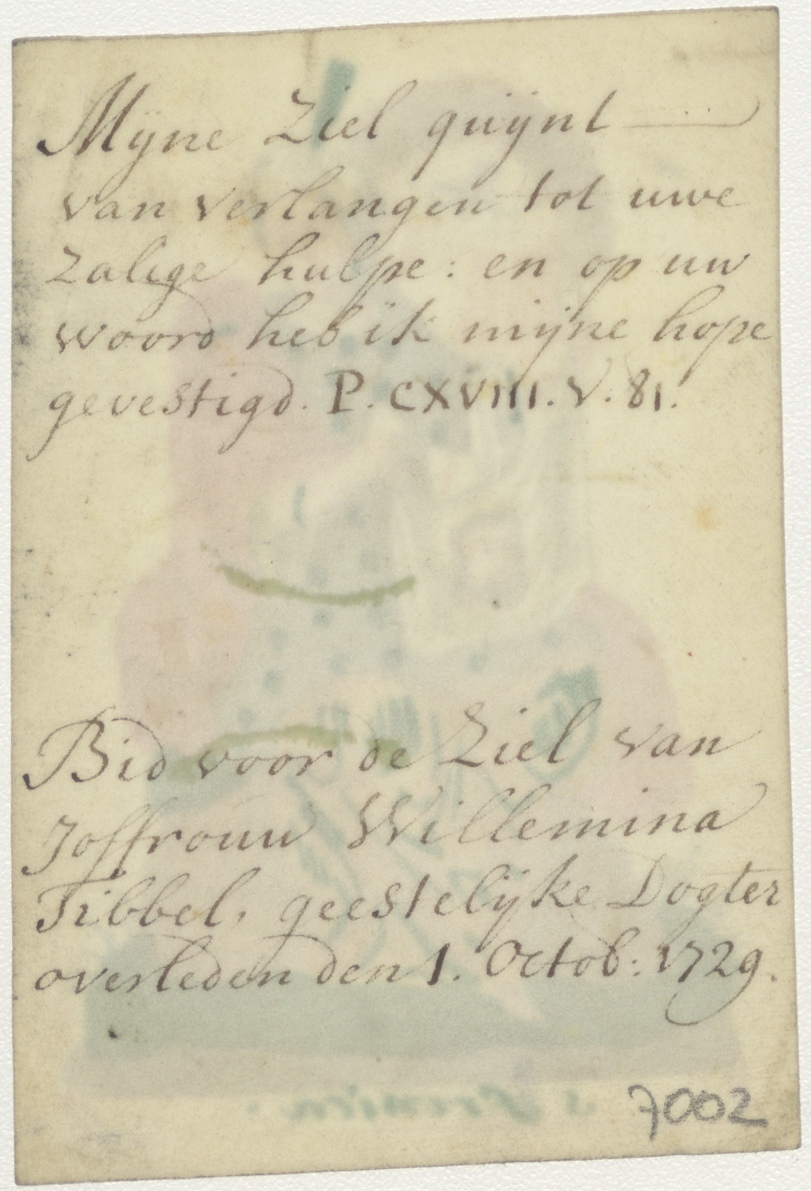 Myne Ziel quÿnt
van verlangen tot uwe
zalige hulpe: en op uw
woord heb ik mijne hope
gevestigd. P. CXVIII. V. 81.
Bid voor de Ziel van
Joffrouw Willemina
Tibbel, geestelÿke Dogter
overleden den 1. Octob: 1729.
7002